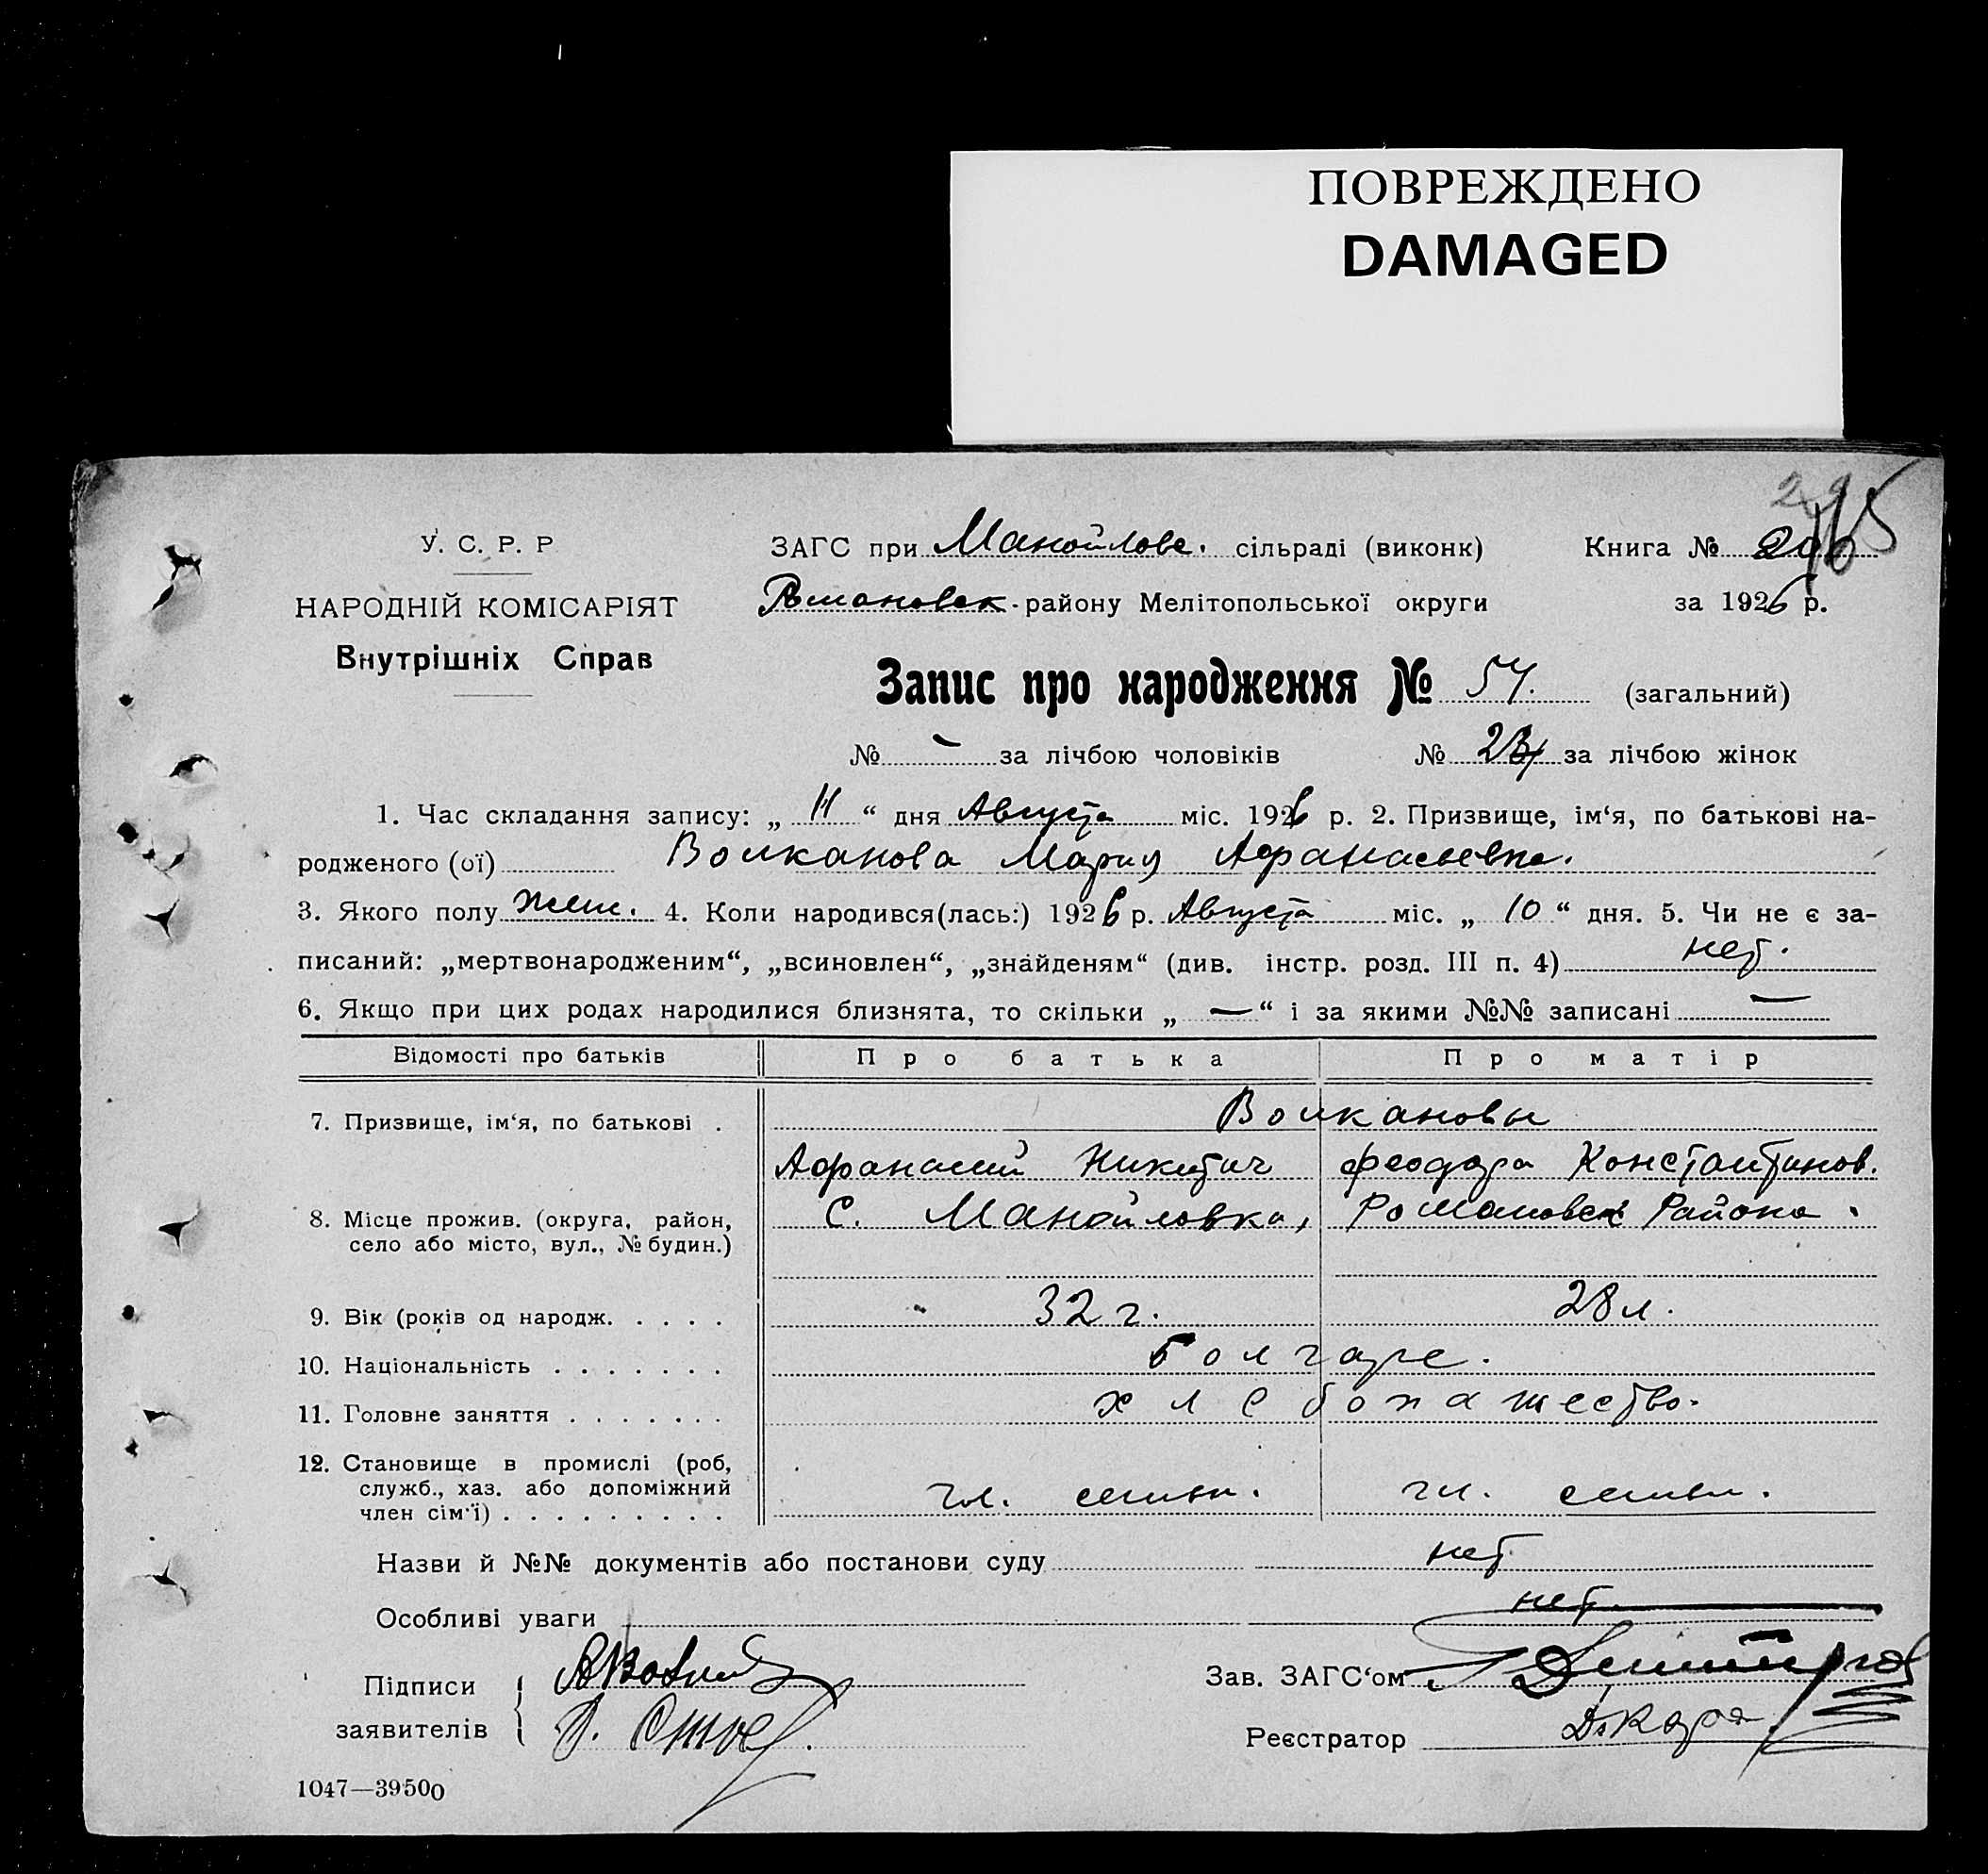 ПОВРЕЖДЕНО
DAMAGED
У. С. Р. Р
НАРОДНІЙ КОМІСАРІЯТ
Внутрішніх Справ
ЗАГС при Манойловс. сільраді (виконк) Книга №
Романовск. району Мелітопольської округи за 1926 р.
Запис про народження № 54. (загальний)
№ - за лічбою чоловіків № за лічбою жінок
1. Час складання запису: „ 11 “ дня Августа міс. 1926 р. 2. Призвище, ім‘я, по батькові на-
родженого (ої) Волканова Мария Афанасьевна.
3. Якого полу жен. 4. Коли народився(лась:) 1926 р. Августа міс. „ 10 “ дня. 5. Чи не є за-
писаний: „мертвонародженим“, „всиновлен“, „знайденям“ (див. інстр. розд. III п. 4) нет.
6. Якщо при цих родах народилися близнята, то скільки „ — “ і за якими №№ записані —
Відомості про батьків Про батька Про матір
7. Призвище, ім‘я, по батькові . Волкановы
Афанасий Никитич феодора Константинов.
8. Місце прожив. (округа, район, с. Манойловка, Романовск Района.
село або місто, вул., № будин.)
9. Вік (років од народж. . . . . 32 г. 28 л.
10. Національність . . . . . . . Болгаре.
11. Головне заняття . . . . . . . хлебопашество.
12. Становище в промислі (роб,
служб., хаз. або допоміжний гл. семьи. гл. семьи.
член сім‘ї) . . . . . . . . .
Назви й №№ документів або постанови суду нет
Особливі уваги нет.
Підписи Зав. ЗАГС‘ом
заявителів Реєстратор
1047—39500